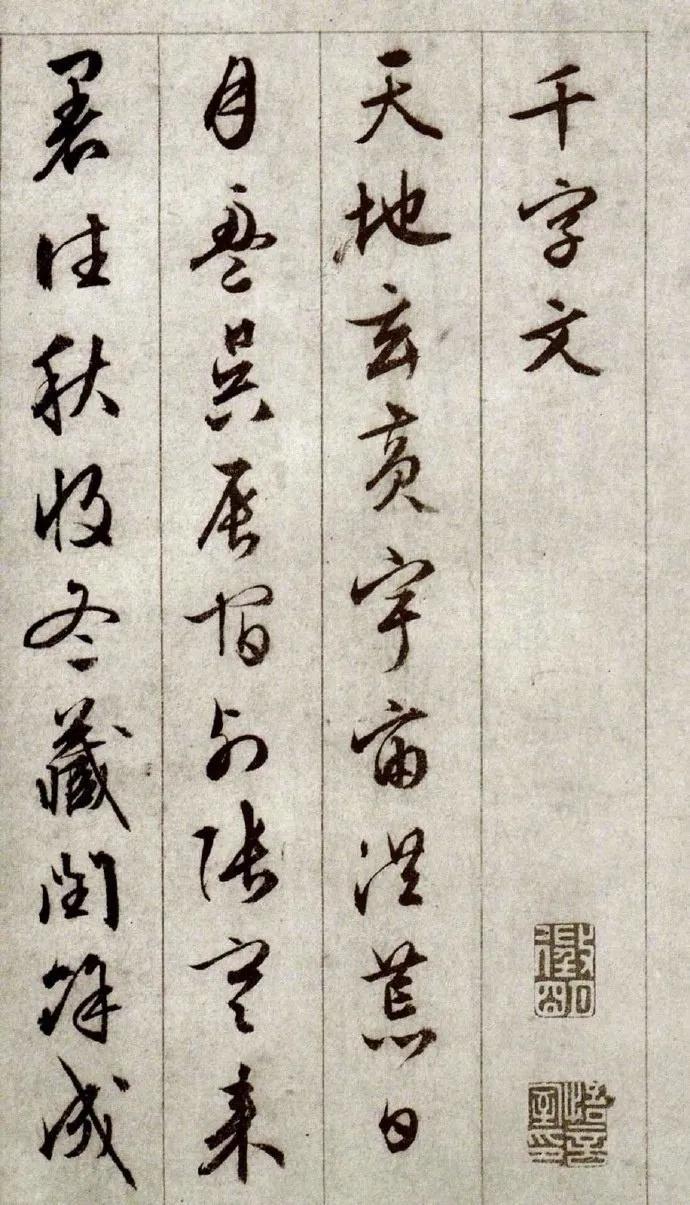 千字文
天地玄黃宇宙洪荒日
月盈昃辰宿列張寒來
暑往秋收冬藏閏餘成
悟言室印